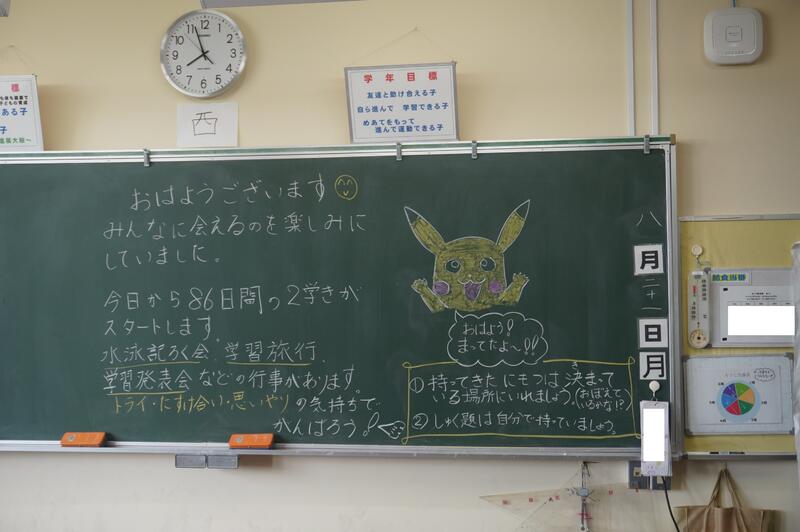 西
学年目標
友達と助け合える子
自ら進んで 学習できる子
めあてをもって
進んで運動できる子
標
ある子
子
おはようございます
みんなに会えるのを楽しみに
していました。
今日から86日間の2学きが
スタートします。
水泳記ろく会、学習旅行、
学習発表会などの行事があります。
トライ・たすけ合い・思いやりの気持ちで
がんばろう!
おはよう!
まってたよ〜!!
①持ってきたにもつは決まって
いる場所にいれましょう。(おぼえて
いるかな!?)
②しゅく題は自分で持っていましょう。
八
月
二十一
日
月
給食当番